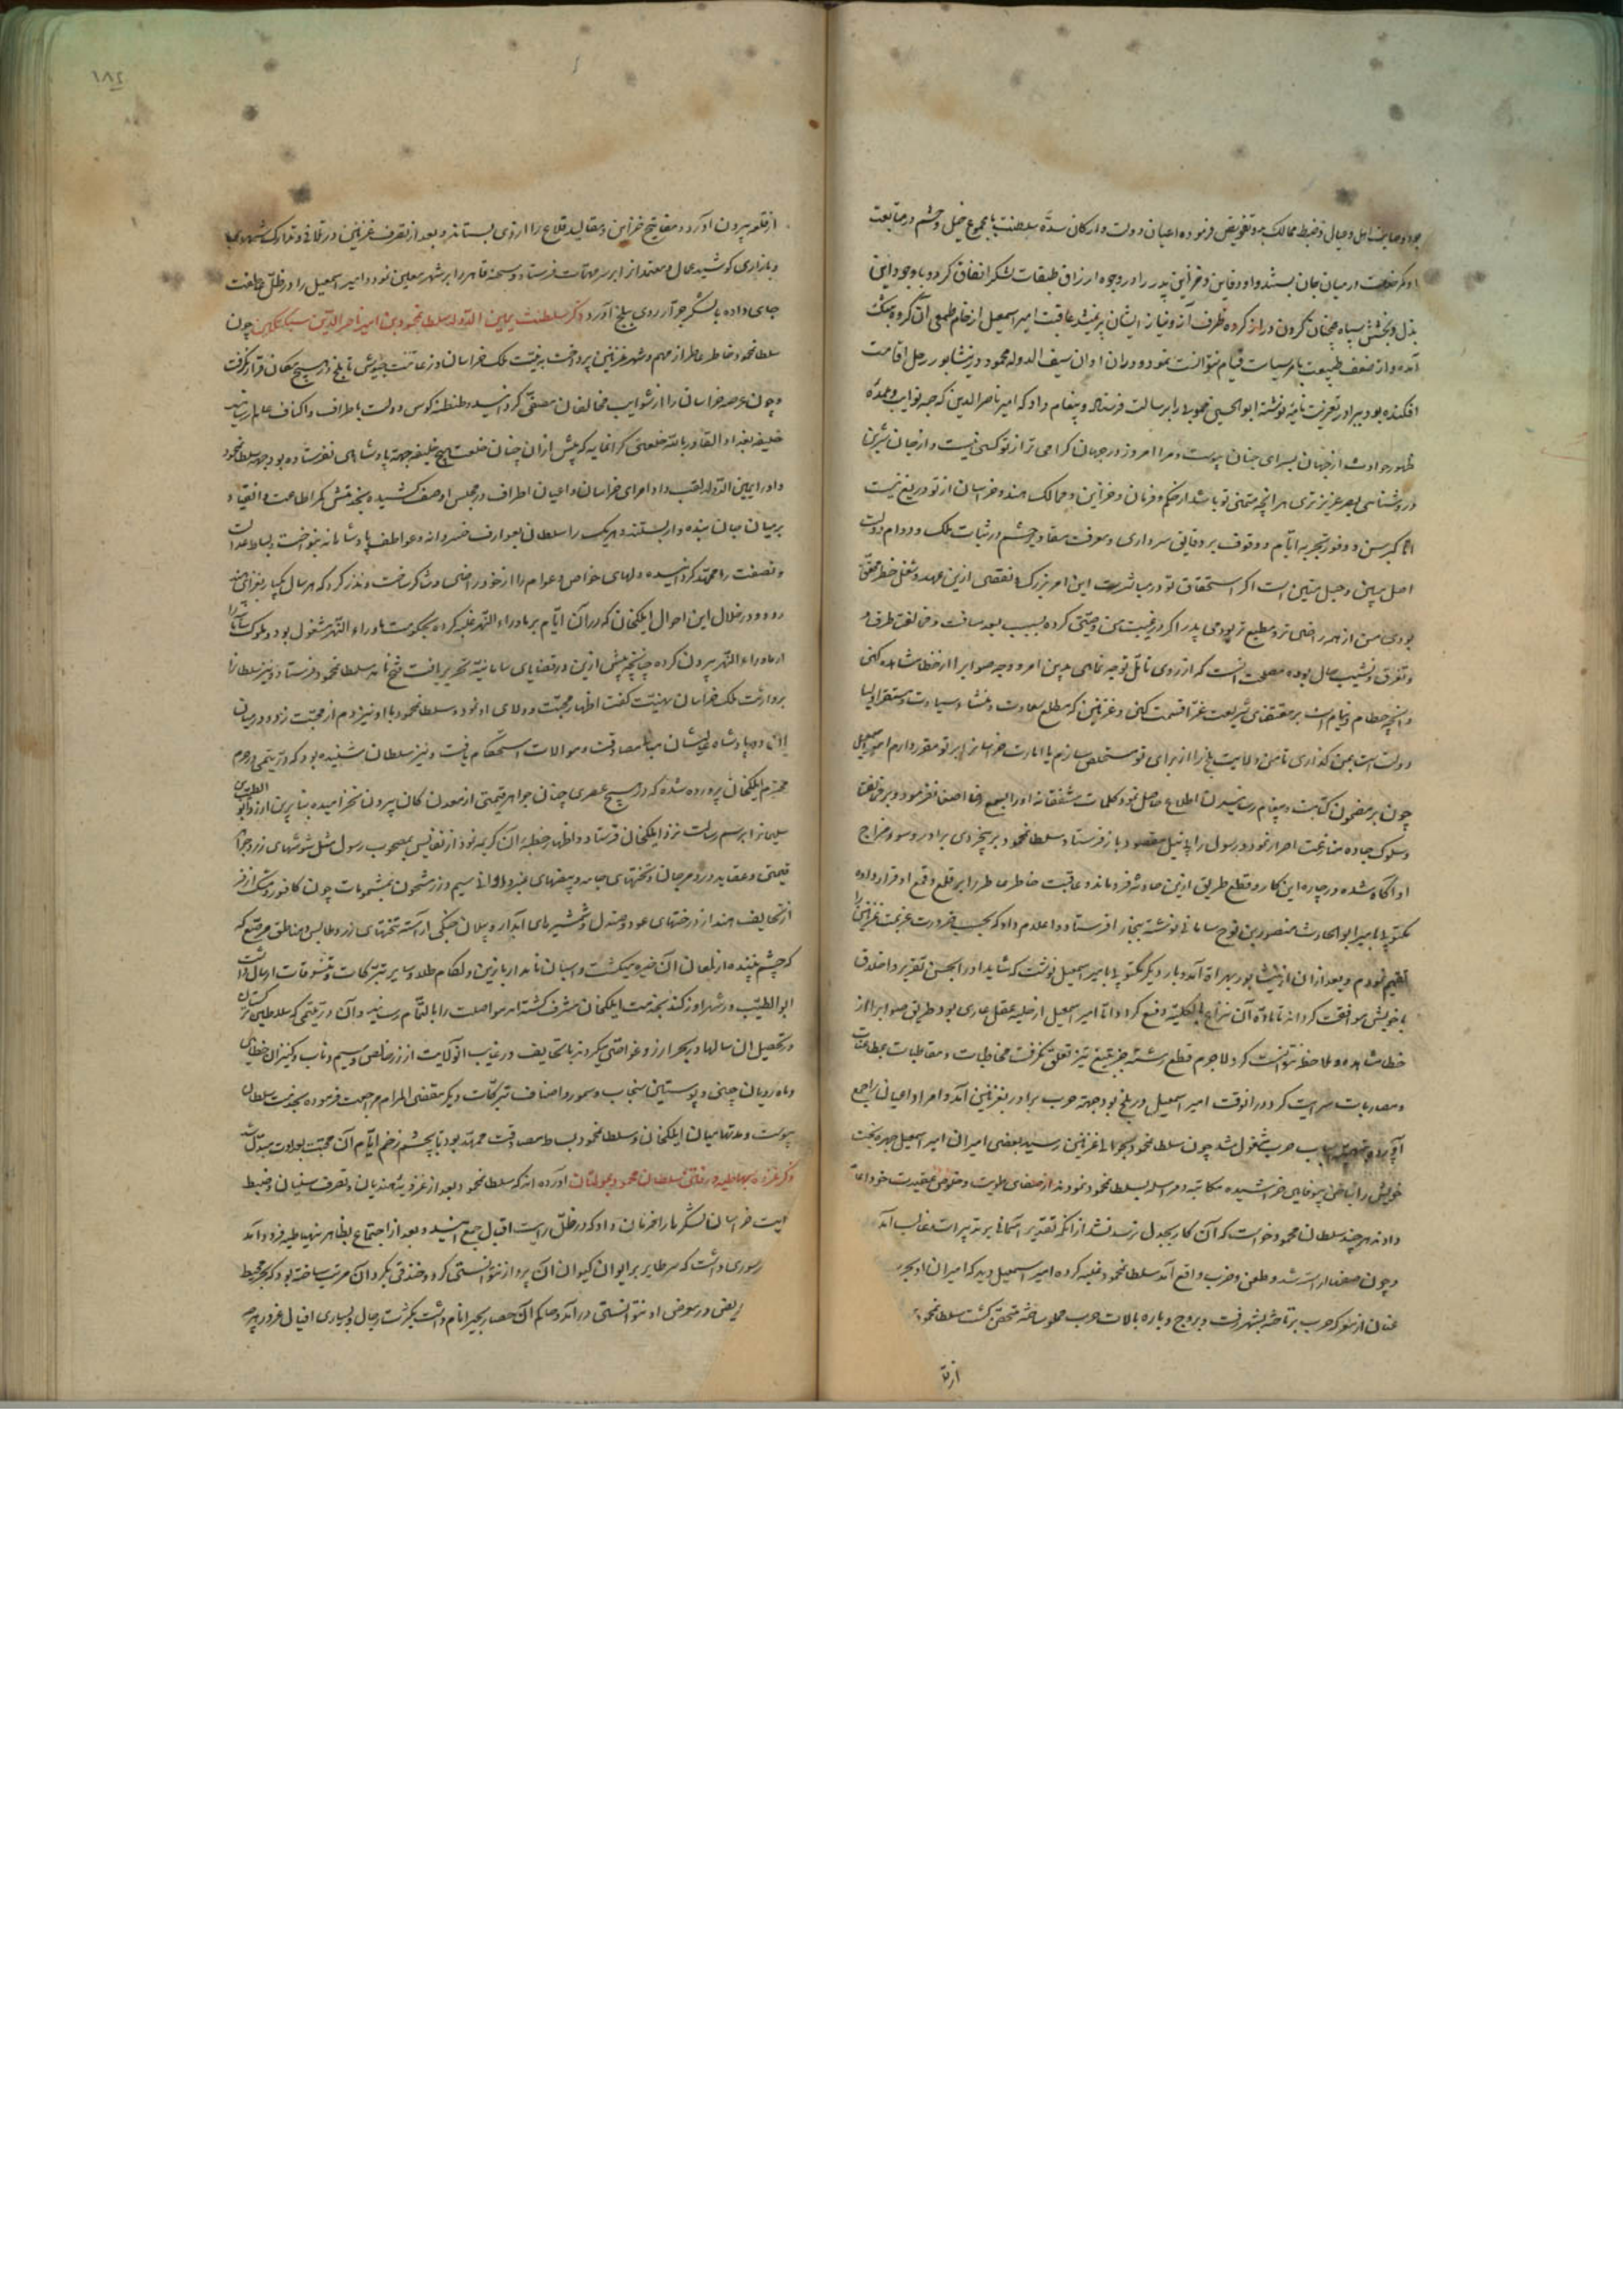 خود وصایت اهل و عیال و ضبط ممالک بدو تفویض فرموده اعیان دولت و ارکان سده سلطنت با مجموع خیل و حشم در متابعت
او کمر خدمت در میان جان بستند و او دفاین و خزاین پدر را در وجوه ارزاق طبقات لشکر انفاق کرد و با وجود این
بذل و بخشش سپاه همچنان گردن دراز کرده ظرف آز و نیاز ایشان پر نمیشد عاقبت امیر اسمعیل از خام طمعی آن گروه بتنک
آمده و از ضعف طبیعت بامر سیاست قیام نتوانست نمود و در آن اوان سیف الدوله محمود در نیشابور رحل اقامت
افکنده بود ببرادر تعزیت نامه نوشته ابو الحسن حمولی را برسالت فرستاد و پیغام داد که امیر ناصر الدین که جنه نوایب و عمده
ظهور حوادث از جهان بسرای جنان پیوست و مرا امروز در جهان گرامی تر از تو کسی نیست و از جان شیرین
و روشنائی بصر عزیزتری هر آنچه متمنی تو باشد از حکم و فرمان و خزاین و ممالک هند و خراسان از تو دریغ نیست
اما کبر سن و وفور تجربه ایام و وقوف بر دقایق سرداری و معرفت سقاوه حشم در ثبات ملک و دوام دولت
اصل مبین و حبل متین است اگر استحقاق تو در مباشرت این امر بزرگ و تقصی ازین عهده و شغل خطیر محقق
بودی من از همه راضی تر و مطیع تر بودمی پدر اگر در غیبت من وصیتی کرده بسبب بعد مسافت و مخالفت طرف و
و تفرق و تشتت حال بوده مصلحت آنست که از روی تامل توجه نمائی بدین امر و وجه صواب را از خطا مشاهده کنی
و آنچه حطام دنیاوی است بر مقتضای شریعت غرا قسمت کنی و غزنین که مطلع سعادت و منشاء سیادت و مستقر اولیا
دولت است بمن گذاری تا من ولایت بلخ را از برای تو مستخلص سازم یا امارت خراسان را بر تو مقرر دارم امیر اسمعیل
چون بر مضمون کتابت و پیغام رسانیدن اطلاع حاصل نمود کلمات مشفقانه او را بسمع رضا اصغا نفرمود و بر مخالفت
و سلوک جاده منازعت اصرار نمود و رسول را بی نیل مقصود باز فرستاد و سلطان محمود بر بیخردی برادر و سوء مزاج
او آگاه شده در چاره این کار و قطع طریق ازین حادثه فرو ماند و عاقبت خاطر عاطر را بر قلع و قمع او قرار داده
مکتوبی بامیر ابو الحارث منصور بن نوح سامانی نوشته ببخارا فرستاد و اعلام داد که بحسب ضرورت عزیمت غزنین را
تصمیم نمودم و بعد از آن از نیشابور بهراة آمد و بار دیگر مکتوبی بامیر اسمعیل نوشت که شاید او را بحسن تقریر و اخلاق
با خویش موافقت گرداند تا ماده آن نزاع بالکلیه دفع گردد اما امیر اسمعیل از حلیه عقل عاری بود و طریق صواب را از
خطا مشاهده و ملاحظه نتوانست کرد لاجرم قطع رشته جز بتیغ تیز تعلق نگرفت مخاطبات و مقاطبات بمطاعنات
و مضاربات سرایت کرد و در آنوقت امیر اسمعیل در بلخ بود جهة حرب برادر بغزنین آمد و امرا و اعیان را جمع
آورده و بتهیه اسباب حرب مشغول شد چون سلطان محمود بحوالی غزنین رسید بعضی امیران امیر اسمعیل چهره بخت
خویش را بناخن بیوفایی خراشیده مکاتبه و مراسله بسلطان محمود نمودند از صفای طویت و خلوص عقیدت خود اعلام
دادند هر چند سلطان محمود خواست که آن کار بجدل نرسد نشد از آنکه تقدیر آسمانی بر تدبیرات غالب آمد
و چون صفها راست شد و طعن و ضرب واقع آمد سلطان محمود غلبه کرده امیر اسمعیل دید که امیران او بجز
عنان از معرکه حرب برتافته بشهر رفت و بروج و باره بآلات حرب مملو ساخته متحصن گشت سلطان محمود
از قلعه
۱۸۲
از قلعه بیرون آورد و مفاتیح خزاین و مقالید قلاع را از وی بستاند و بعد از تصرف غزنین در تلافی و تدارک شهری
و بازاری کوشید عمال و معتمد از ابر سر مهمات فرستاد و شحنه قاهر را بر شهر معین نمود و امیر اسمعیل را در ظل عاطفت
جای داده با لشکر جرار روی ببلخ آورد ذکر سلطنت یمین الدوله سلطان محمود بن امیر ناصر الدین سبکتکین چون
سلطان محمود خاطر عاطر از مهم و شهر غزنین پرداخت بر نیت ملک خراسان و زعامت جیوش تا بلخ در هیچ مکان قرار نگرفت
و چون عرصه خراسان را از شوایب مخالفان مصفی گردانید و طنطنه کوس دولت باطراف و اکناف عالم رسانید
خلیفه بغداد القادر بالله خلعتی گرانمایه که پیش از آن چنان خلعت هیچ خلیفه جهة پادشاهی نفرستاده بود جهة سلطان محمود
و او را یمین الدوله لقب داد و امرای خراسان و اعیان اطراف در مجلس او صف کشیده بخدمتش کمر اطاعت و انقیاد
بر میان جان بنده وار بستند و هر یک را سلطان بعوارف خسروانه و عواطف پادشاهانه بنواخت و بساط عدالت
و نصفت را ممهد گردانیده دلهای خواص و عوام را از خود راضی و شاکر ساخت و نذر کرد که هر سال یکبار بغزای هند
رود و در خلال این احوال ایلکخان که در آن ایام بر ماوراء النهر غلبه کرده بحکومت ماوراء النهر مشغول بود و ملوک سامانی را
از ماوراء النهر بیرون کرده چنانچه پیش ازین در قضایای سامانیه تحریر یافت فتح نامه سلطان محمود فرستاد و نیز سلطان را
بوراثت ملک خراسان تهنیت گفت اظهار محبت و ولای او نمود و سلطان محمود با او نیز دم از محبت زد و در میان
این دو پادشاه عالیشان مبانی مصادقت و موالات استحکام یافت و نیز سلطان شنیده بود که در یتیمی در حرم
محترم ایلکخان پرورده شده که در هیچ عصری چنان جواهر قیمتی از معدن کان بیرون نخرامیده بنا برین ابو الطیب
سلیمان را برسم رسالت نزد ایلکخان فرستاد و اظهار خطبه آن کریمه نمود از نفایس بمصحوب رسول مثل شوشهای زر و جواهر
قیمتی و عقاید در و مرجان و تختهای جامه و بیضهای عنبر و اوانی سیم و زر مشحون بمشمومات چون کافور و مشک
از تحایف هند از درختهای عود و صندل و شمشیرهای آبدار و پیلان جنگی آراسته بتختهای زر و ملابس و مناطق مرصع که
که چشم بیننده از لمعان آن خیره میگشت و اسپان نامدار با زین و لگام طلا و سایر تبرکات و تنسوقات ارسال داشت
ابو الطیب در شهر اوزکند بخدمت ایلکخان مشرف گشته امر مواصلت را باتمام رسانید و آن در یتیمی که سلاطین ترکستان
در تحصیل آن سالها در بحر آرزو غواصی میکردند با تحایف و رغایب آنولایت از زر خالص و سیم ناب و کنیزان خطایی
و ماه رویان چینی و پوستین سنجاب و سمور و اصناف تبرکات دیگر مقضی المرام مراجعت فرموده بخدمت سلطان
پیوست و مدتها میان ایلکخان و سلطان محمود بساط مصادقت ممهد بود تا بچشم زخم ایام آن محبت بعداوت مبدل شد
ذکر غزوه بهاطیه و رفتن سلطان محمود بمولتان آورده اند که سلطان محمود بعد از غزوه هندیان و تصرف سیستان و ضبط
ایت خراسان لشکر را فرمان داد که در ظل رایت اقبال جمع آمدند و بعد از اجتماع بظاهر بهاطیه فرود آمد
سوری داشت که سر طایر بر ایوان کیوان آن پرواز نتوانستی کرد و خندقی بگرد آن مرتب ساخته بود که بحر محیط
عریض در معرض او نتوانستی درآمد و حاکم آن حصار بجیرا نام داشت بکثرت رجال و بسیاری افیال مغرور بود